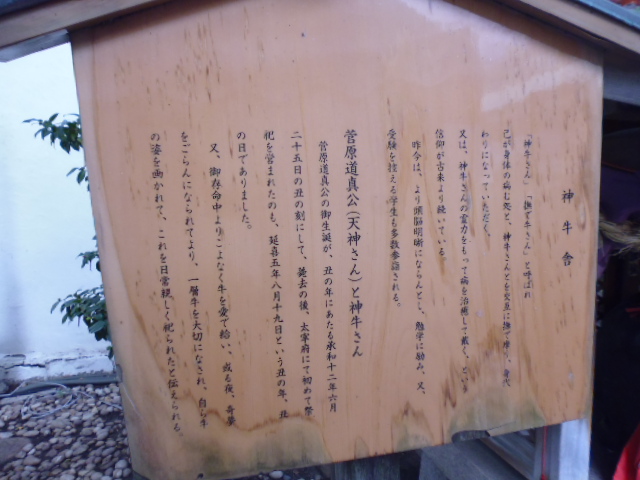 神牛舎
「神牛さん」「撫で牛さん」と呼ばれ
己が身体の病む処と、神牛さんとを交互に撫で摩り、身代
わりになっていただく。
又は、神牛さんの霊力をもって病を治癒して戴く、という
信仰が古来より続いている。
昨今は、より頭脳明晰にならんとし、勉学に励み、又、
受験を控える学生も多数参詣される。
菅原道真公(天神さん)と神牛さん
菅原道真公の御生誕が、丑の年にあたる承和十二年六月
二十五日の丑の刻にして、薨去の後、太宰府にて初めて祭
祀を営まれたのも、延喜五年八月十九日という丑の年、丑
の日でありました。
又、御存命中よりこよなく牛を愛で給い、或る夜、奇夢
をごらんになられてより、一層牛を大切になされ、自ら牛
の姿を画かれて、これを日常親しく祀られたと伝えられる。